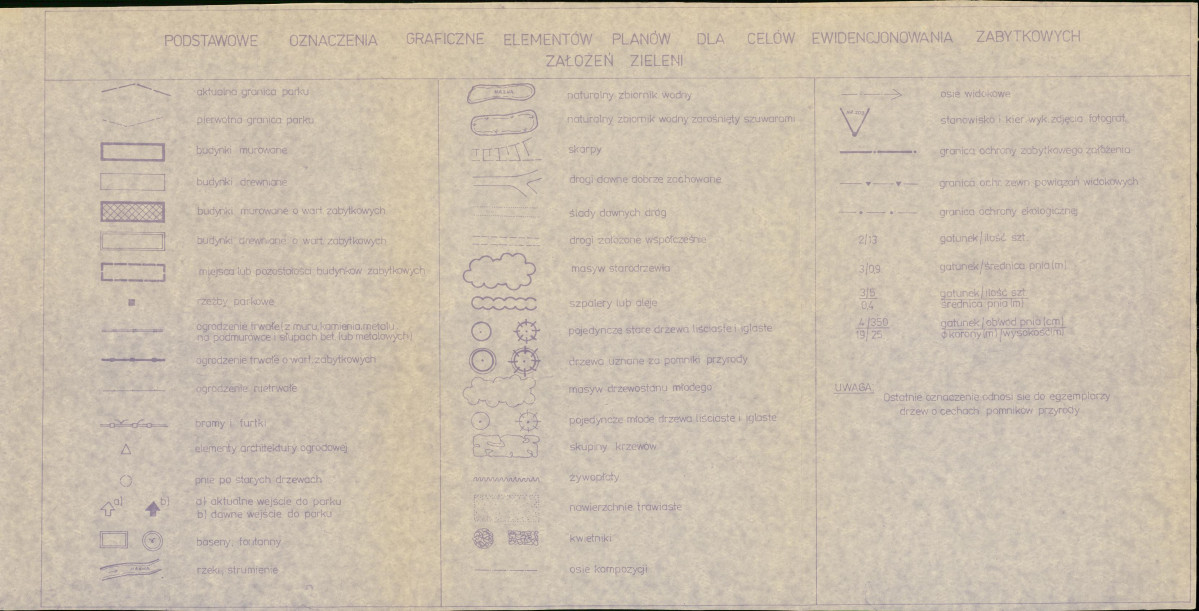 PODSTAWOWE OZNACZENIA GRAFICZNE ELEMENTÓW PLANÓW DLA CELÓW EWIDENCJONOWANIA ZABYTKOWYCH
ZAŁOŻEŃ ZIELENI
aktualna granica parku
pierwotna granica parku
budynki murowane
budynki drewniane
budynki murowane o wart. zabytkowych
budynki drewniane o wart. zabytkowych
miejsca lub pozostałości budynków zabytkowych
rzeźby parkowe
ogrodzenie trwałe (z muru, kamienia, metalu
na podmurówce i słupach bet. lub metalowych)
ogrodzenie trwałe o wart. zabytkowych
ogrodzenie nietrwałe
bramy i furtki
elementy architektury ogrodowej
pnie po starych drzewach
a) b)
a) aktualne wejście do parku
b) dawne wejście do parku
baseny, fontanny
rzeki, strumienie
naturalny zbiornik wodny
naturalny zbiornik wodny zarośnięty szuwarami
skarpy
drogi dawne dobrze zachowane
ślady dawnych dróg
drogi założone współcześnie
masyw starodrzewia
szpalery lub aleje
pojedyncze stare drzewa liściaste i iglaste
drzewa uznane za pomniki przyrody
masyw drzewostanu młodego
pojedyncze młode drzewa liściaste i iglaste
skupiny krzewów
żywopłoty
nawierzchnie trawiaste
kwietniki
osie kompozycji
osie widokowe
stanowisko i kier. wyk. zdjęcia fotograf.
granica ochrony zabytkowego założenia
granica ochr. zewn. powiązań widokowych
granica ochrony ekologicznej
2/13 gatunek/ilość szt.
3/09 gatunek/średnica pnia (m)
3/6 gatunek/ilość szt.
0,4 średnica pnia (m)
4/350 gatunek/obwód pnia (cm)
19/25 ø korony (m)/wysokość (m)
UWAGA:
Ostatnie oznaczenie odnosi się do egzemplarzy
drzew o cechach pomników przyrody